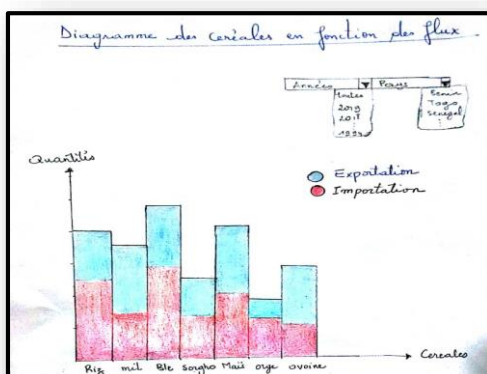 Diagramme des ceréales en fonction des flux
Années Pays
Toutes
2019
2018
1994
Benin
Togo
Sénégal
Quantités
Exportation
Importation
Riz mil Ble Sorgho Mais orge avoine
Cereales